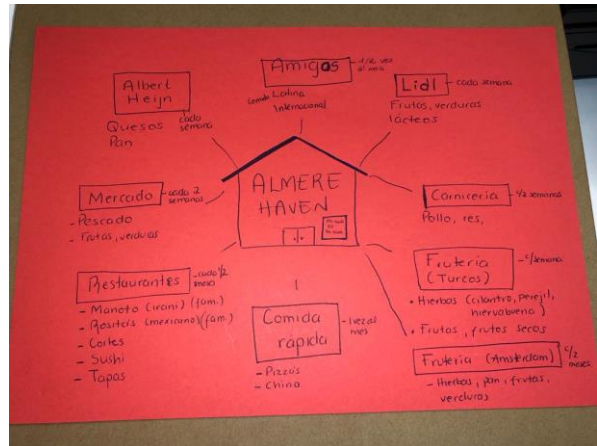 Amigos
1/2 vez
al mes
Comida Latina
Internacional
Albert
Heijn
cada
semana
Quesos
Pan
Lidl
cada semana
Frutas, verduras
lácteos
Mercado
cada 2
semanas
- Pescado
- Frutas, verduras
ALMERE
HAVEN
Carniceria
1/2 semanas
Pollo, res,
Restaurantes
cada 1/2
meses
- Manoto (irani) (fam.)
- Rositas (mexicano) (fam.)
- Cortes
- Sushi
- Tapas
Comida
rápida
1 vez al
mes
- Pizzas
- China
Fruteria
(Turcos)
c/semana
• Hierbas (cilantro, perejil,
hierbabuena)
• Frutas, frutos secos
Fruteria (Amsterdam)
c/2
meses
- Hierbas, pan, frutas,
verduras